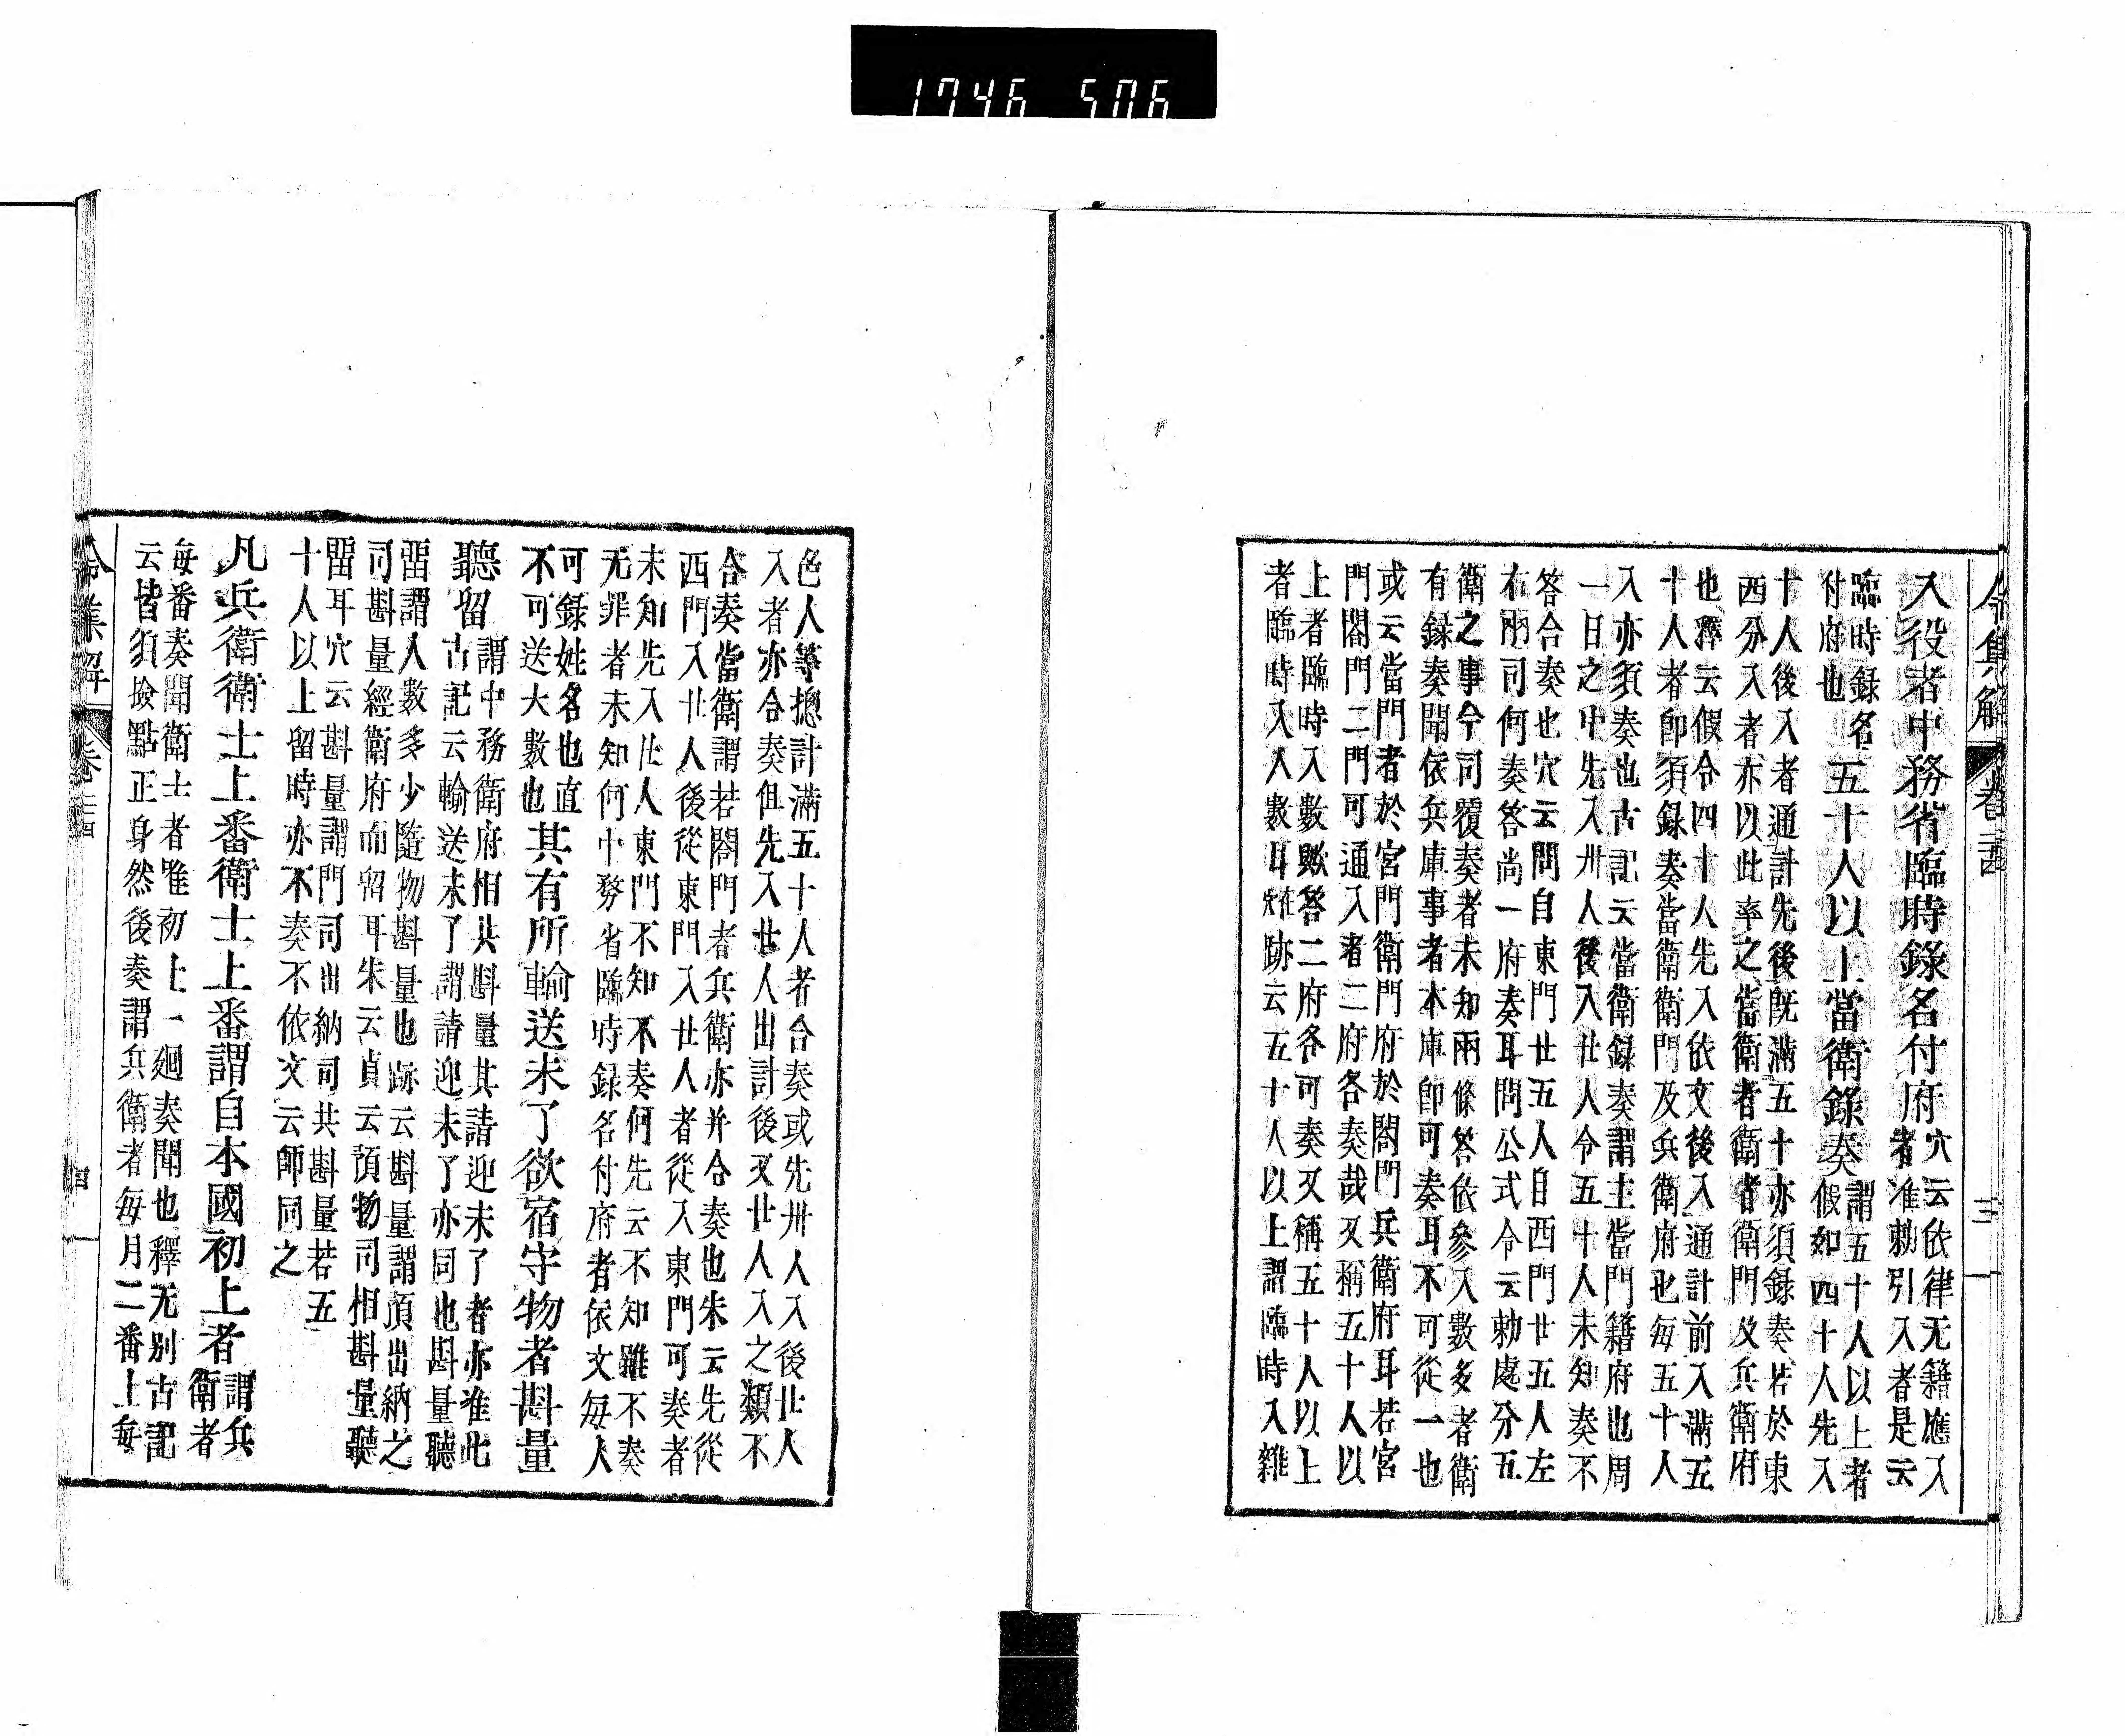 1746 506
令集解 卷二十四 三
入役者中務省臨時錄名付府穴云依律无籍應入
者准勅引入者是云
臨時録名
付府也
五十人以上當衛錄奏謂五十人以上者
假如四十人先入
十人後入者通計先後既滿五十亦須録奏若於東
西分入者亦以此率之當衛者衛省衛門及兵衛府
也釋云假令四十人先入依文後入通計前入滿五
十人者即須録奏當衛衛門及兵衛府也每五十人
入亦須奏也古記云當衛録奏謂主當門籍府也周
一日之中先入卅人後入廿人令五十人未知奏不
答合奏也穴云問自東門廿五人自西門廿五人左
右兩司何奏答尚一府奏耳問公式令云勅處分五
衛之事今司覆奏者未知兩條答依參入數多者衛
有録奏聞依兵庫事者本庫即可奏耳不可從一也
或云當門者於宮門衛門府於閤門兵衛府耳若宮
門閤門二門可通入者二府各奏哉又稱五十人以
上者臨時入數歟答二府各可奏又稱五十人以上
者臨時入人數耳跡云五十人以上謂臨時入雜
色人等揔計滿五十人者合奏或先卅人入後廿人
入者亦合奏但先入廿人出計後又廿人入之類不
合奏當衛謂若閤門者兵衛亦并合奏也朱云先從
西門入廿人後從東門入廿人者從入東門可奏者
未知先入廿人東門不知不奏何先云不知雖不奏
无罪者未知何中務省臨時録名付府者依文每人
可錄姓名也直
不可送大數也
其有所輸送未了欲宿守物者斟量
聽留謂中務衛府相共斟量其請迎未了者亦准此
古記云輸送未了謂請迎未了亦同也斟量聽
留謂人數多少隨物斟量也跡云斟量謂須出納之
司斟量經衛府而留耳朱云貞云預物司相斟量聽
留耳穴云斟量謂門司出納司共斟量若五
十人以上留時亦不奏不依文云師同之
凡兵衛衛士上番衛士上番謂自本國初上者謂兵
衛者
每番奏聞衛士者唯初上一廻奏聞也釋无别古記
云皆須撿點正身然後奏謂兵衛者每月二番上每
令集解 卷二十四 四